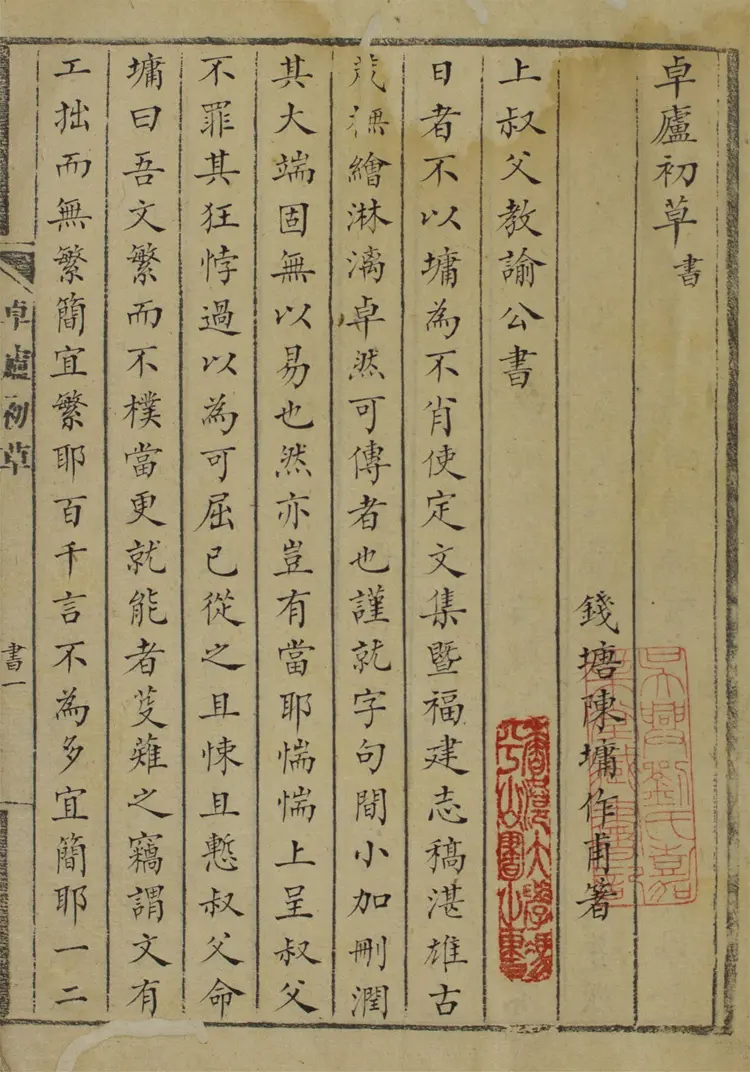 卓廬初草 書
錢塘陳墉作甫著
上叔父教諭公書
日者不以墉為不肖使定文集暨福建志稿湛雄古
茂繪淋漓卓然可傳者也謹就字句間小加刪潤
其大端固無以易也然亦豈有當耶惴惴上呈叔父
不罪其狂悖過以為可屈已從之且悚且慙叔父命
墉曰吾文繁而不樸當更就能者芟薙之竊謂文有
工拙而無繁簡宜繁耶百千言不為多宜簡耶一二
卓廬初草
書一
吳興劉氏嘉
業堂藏書記
香港大學馮
平山圖書